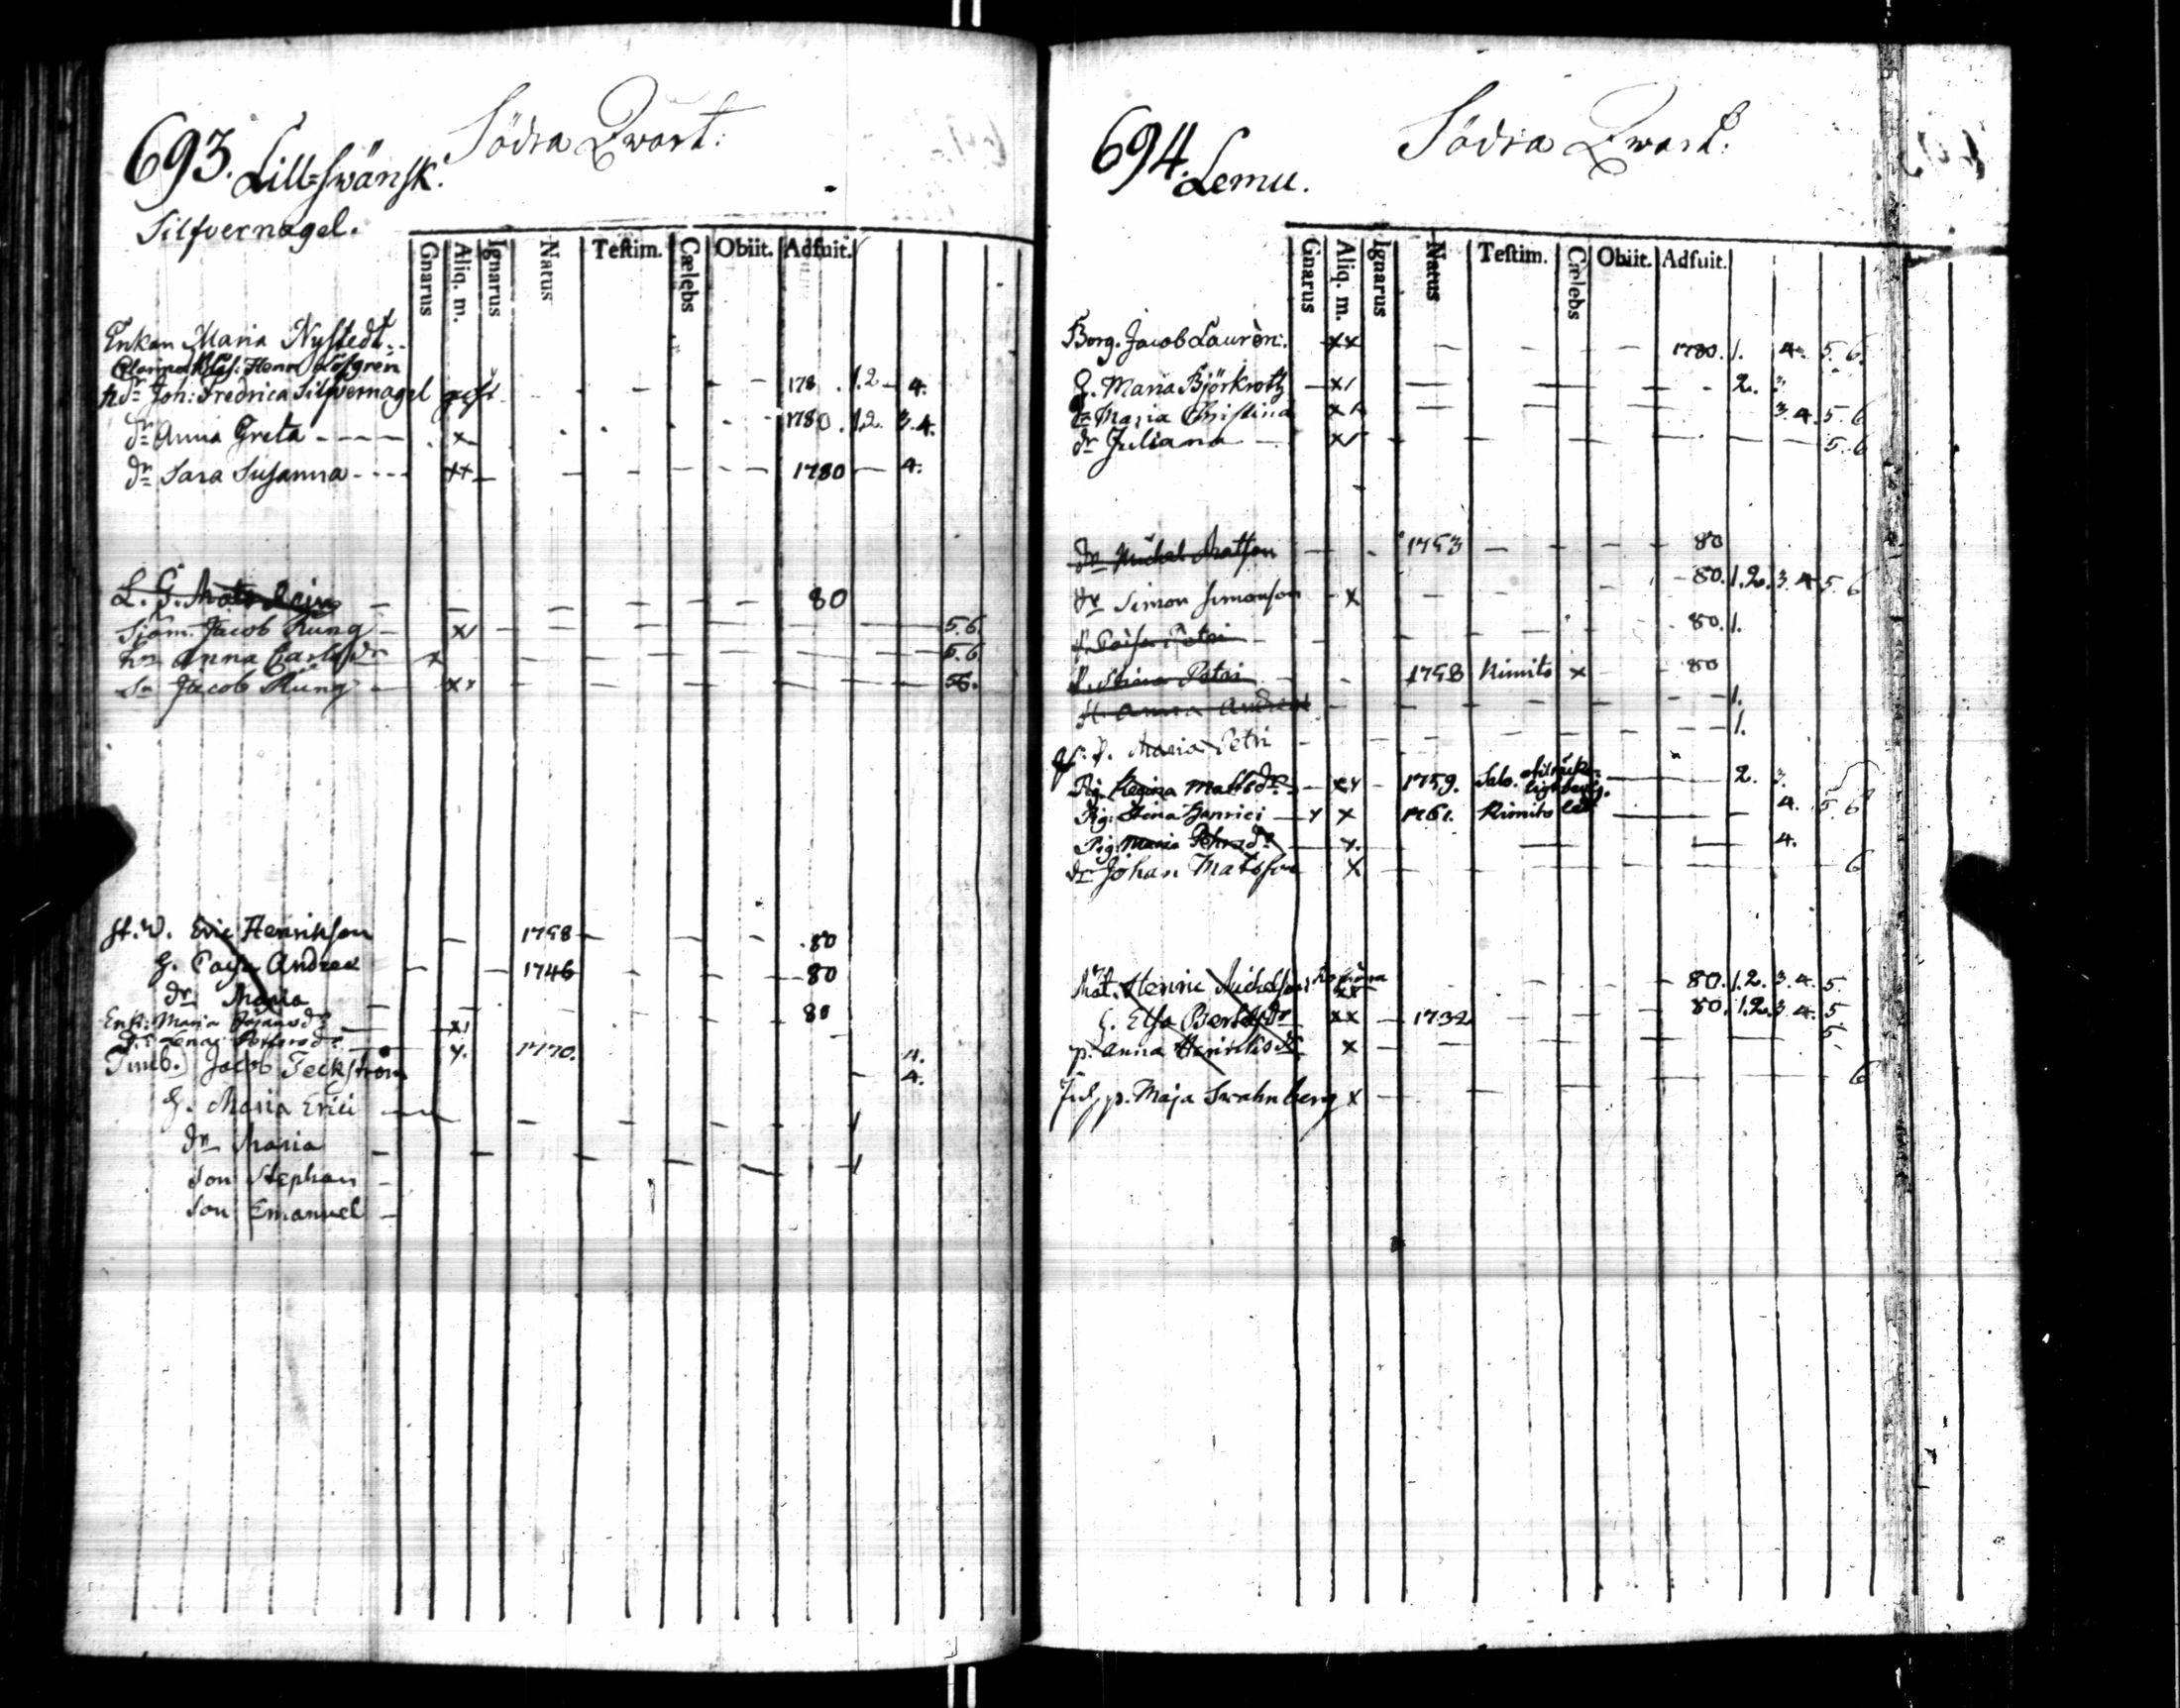 693. Lill-Swänsk. Södra Qwart:
Silfvernagel.
Gnarus Aliq. m. Ignarus Natus Testim. Cælebs Obiit. Adfuit.
Enkan Maria Nystedt
Henr Löfgren
dr Joh: Fredrica Silfvernagel gift 178 . 1.2 4.
dr Anna Greta x 1780. 1.2. 3.4.
dr Sara Susanna xx 1780 4.
L. G. Mats 80
Sjöm. Jacob Kung x 5.6.
hu Anna Carlsdr x 5.6
So Jacob Kung xx 56.
st. w. Eric Henrikson 1758 80
H. Caisa Andreæ 1746 80
dr Maria 80
Enk: Maria xx
Lena x. 1770. 4.
Timb. Jacob Teckström 4.
H. Maria Erici
dr Maria
Son Stephan
Son Emanuel
694. Lemu. Södra Qwart:
Gnarus Aliq. m. Ignarus Natus Testim. Cælebs Obiit. Adfuit.
Borg. Jacob Lauren: xx 1780. 1. 4. 5. 6.
H. Maria Björkroth x 2. 3.
dr Maria Christina x 3.4. 5.6
dr Juliana x 5.6
dr Michel Matsson 1753 80
dr Simon Simonson x 80. 1.2. 3.4 5 6
p. Caisa Petri 80. 1.
p. Stina Petri 1758 Kimito x 80
H. Anna Andreæ 1.
p. Maria Petri 1.
Pig. Regina Mattsdr xx 1759. Salo. 2. 3.
Pig: Stina Henrici x x 1761. Kimito led 4. 5 6
Pig: Maria Petersdr x. 4.
dr Johan Matsson x 6
Mat. Henric Michelson xx 80. 1.2. 3.4. 5.
H. Elsa Bertilsdr xx 1732 80. 1.2. 3 4. 5
p. Anna Henriksdr x 5
p. Maja Swahnberg x 6